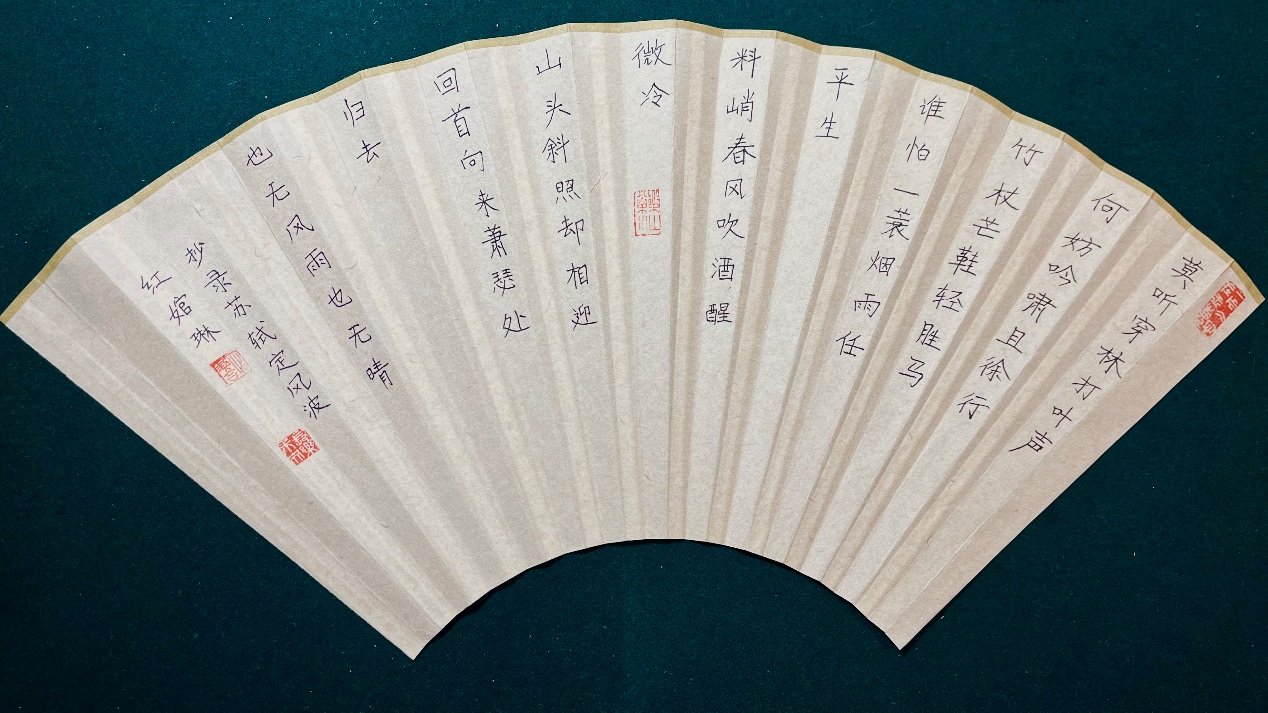 莫听穿林打叶声
何妨吟啸且徐行
竹杖芒鞋轻胜马
谁怕一蓑烟雨任
平生
料峭春风吹酒醒
微冷
山头斜照却相迎
回首向来萧瑟处
归去
也无风雨也无晴
抄录苏轼定风波
红婠琳